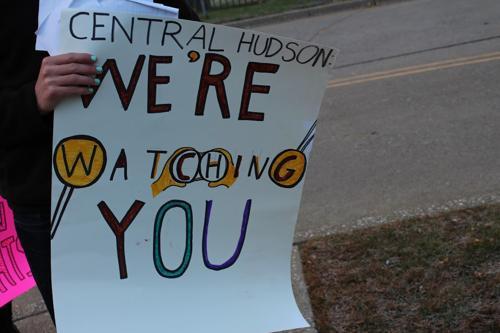 CENTRAL HUDSON:
WE'RE
WATCHING
YOU